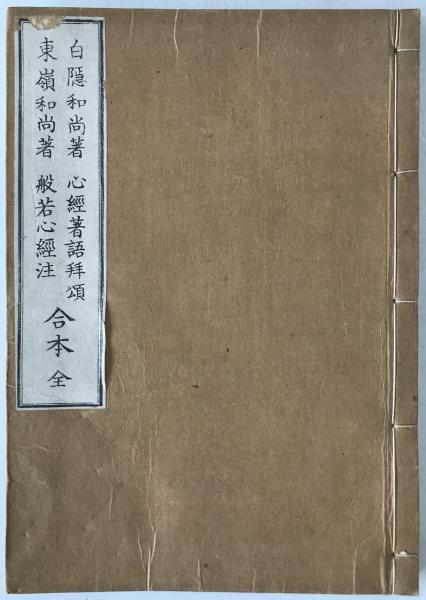 白隱和尚著 心經著語拜頌
東嶺和尚著 般若心經注
合本 全